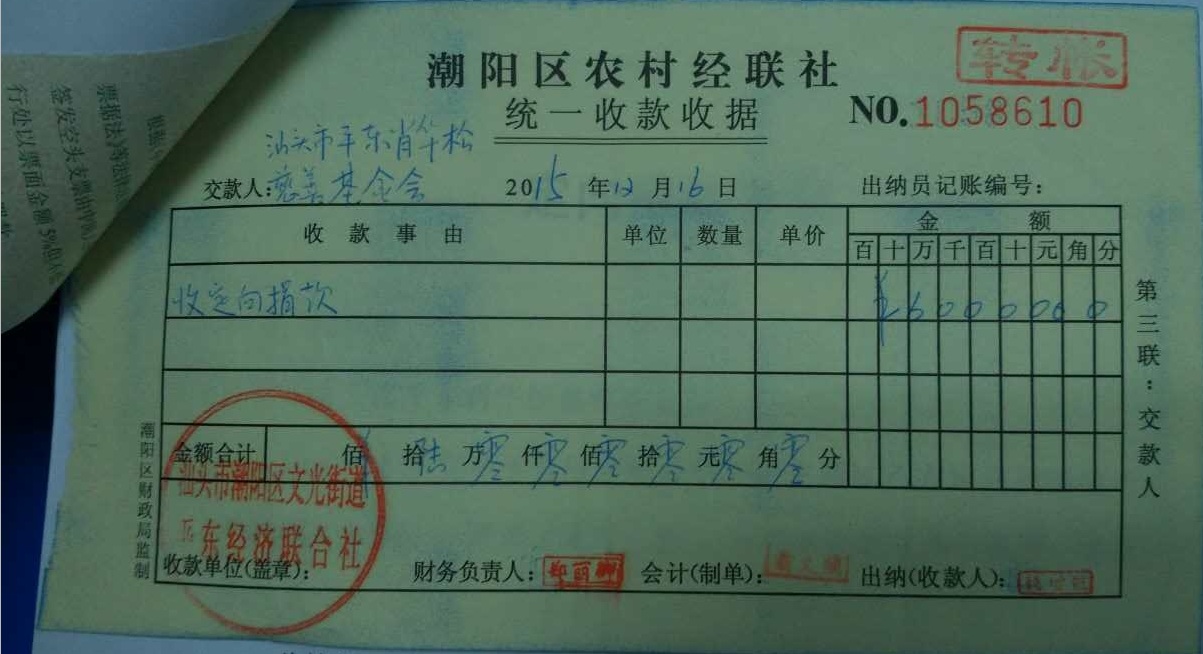 转帐
潮阳区农村经联社
统一收款收据
NO.1058610
汕头市平东肖华松
交款人:慈善基金会 2015年12月16日 出纳员记账编号:
收款事由 单位 数量 单价 金额
百 十 万 千 百 十 元 角 分
收定向捐款 ¥6000000
金额合计 佰 拾陆万零仟零佰零拾零元零角零分
汕头市潮阳区文光街道
东经济联合社
收款单位(盖章): 财务负责人: 会计(制单): 出纳(收款人):
第三联:交款人
潮阳区财政局监制
票据法》等法律
签发空头支票由中
行处以票面金额5%但不